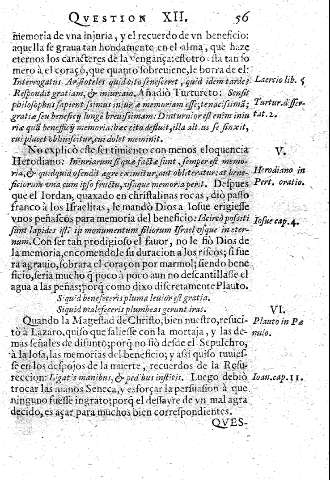 QVESTION XII. 56
memoria de vna injuria, y el recuerdo de vn beneficio:
aquella se graua tan hondamente en el alma, que haze
eternos los caractères de la vengança: estotro está tan so
mero à el coraçõ, que quatro sobreuiene, le borra de el:
Interrogatus Aristoteles quid citò senesceret, quid idem tardè:
Laercio lib. 5
Respondit gratiam, & iniuriam. Añadiò Turtureto: Sensit
philosophus sapientissimus iniuriæ memoriam esse tenacissimã;
Tartur. disser-
gratiæ seu beneficij longè breuissimam. Diuturnior est enim iniu
tat. 2.
riæ quã beneficij memoria: hæc citò defluit, illa alt us se finxit,
cui placet obliuiscitur, cui dolet meminit.
No explicò este sertimiento con menos eloquencia
V.
Herodiano: Iniuriarum si quæ factæ sunt, semper est memo-
Herodiano in
ria, & quidquid ofendit ægrè eximitur, aut oblitteratur: at bene-
Pert. oratio.
ficiorum vna cum ipso fructu, vsuque memoria perit. Despues
que el Iordan, quaxado en christalinas rocas, diò passo
franco à los Israelitas, le mandò Dios a Iosue erigiesse
vnos peñascos para memoria del beneficio: Idcircò positi
Iosue cap. 4.
sunt lapides isti in monumentum filiorum Israel vsque in æter-
num. Con ser tan prodigioso el fauor, no le fiò Dios de
la memoria, encomendole su duracion a los riscos; si fue
ra agrauio, sobrara el coraçon por marmol; siendo bene
ficio, seria mucho q̃ poco à poco aun no descantillasse el
agua a las peñas; porq̃ como dixo discretamente Plauto.
Si quid benefeceris pluma leuior est gratia.
Si quid malefeceris plumbeas gerunt iras.
VI.
Quando la Magestad de Christo, bien nuestro, resuci-
Plauto in Pæ
tò à Lazaro, quiso que saliesse con la mortaja, y las de-
nulo.
mas señales de difunto; porq̃ no fiò desde el Sepulchro,
à la losa, las memorias del beneficio; y assi quiso tuuies-
se en los despojos de la muerte, recuerdos de la Resu-
reccion: Ligatis manibus, & pedibus institis. Luego deuiò
Ioan. cap. 11.
trocar las manos Seneca, y esforçar la persuasion à que
ninguno fuesse ingrato: porq̃ el dessayre de vn mal agra
decido, es açar para muchos bien correspondientes.
QVES-